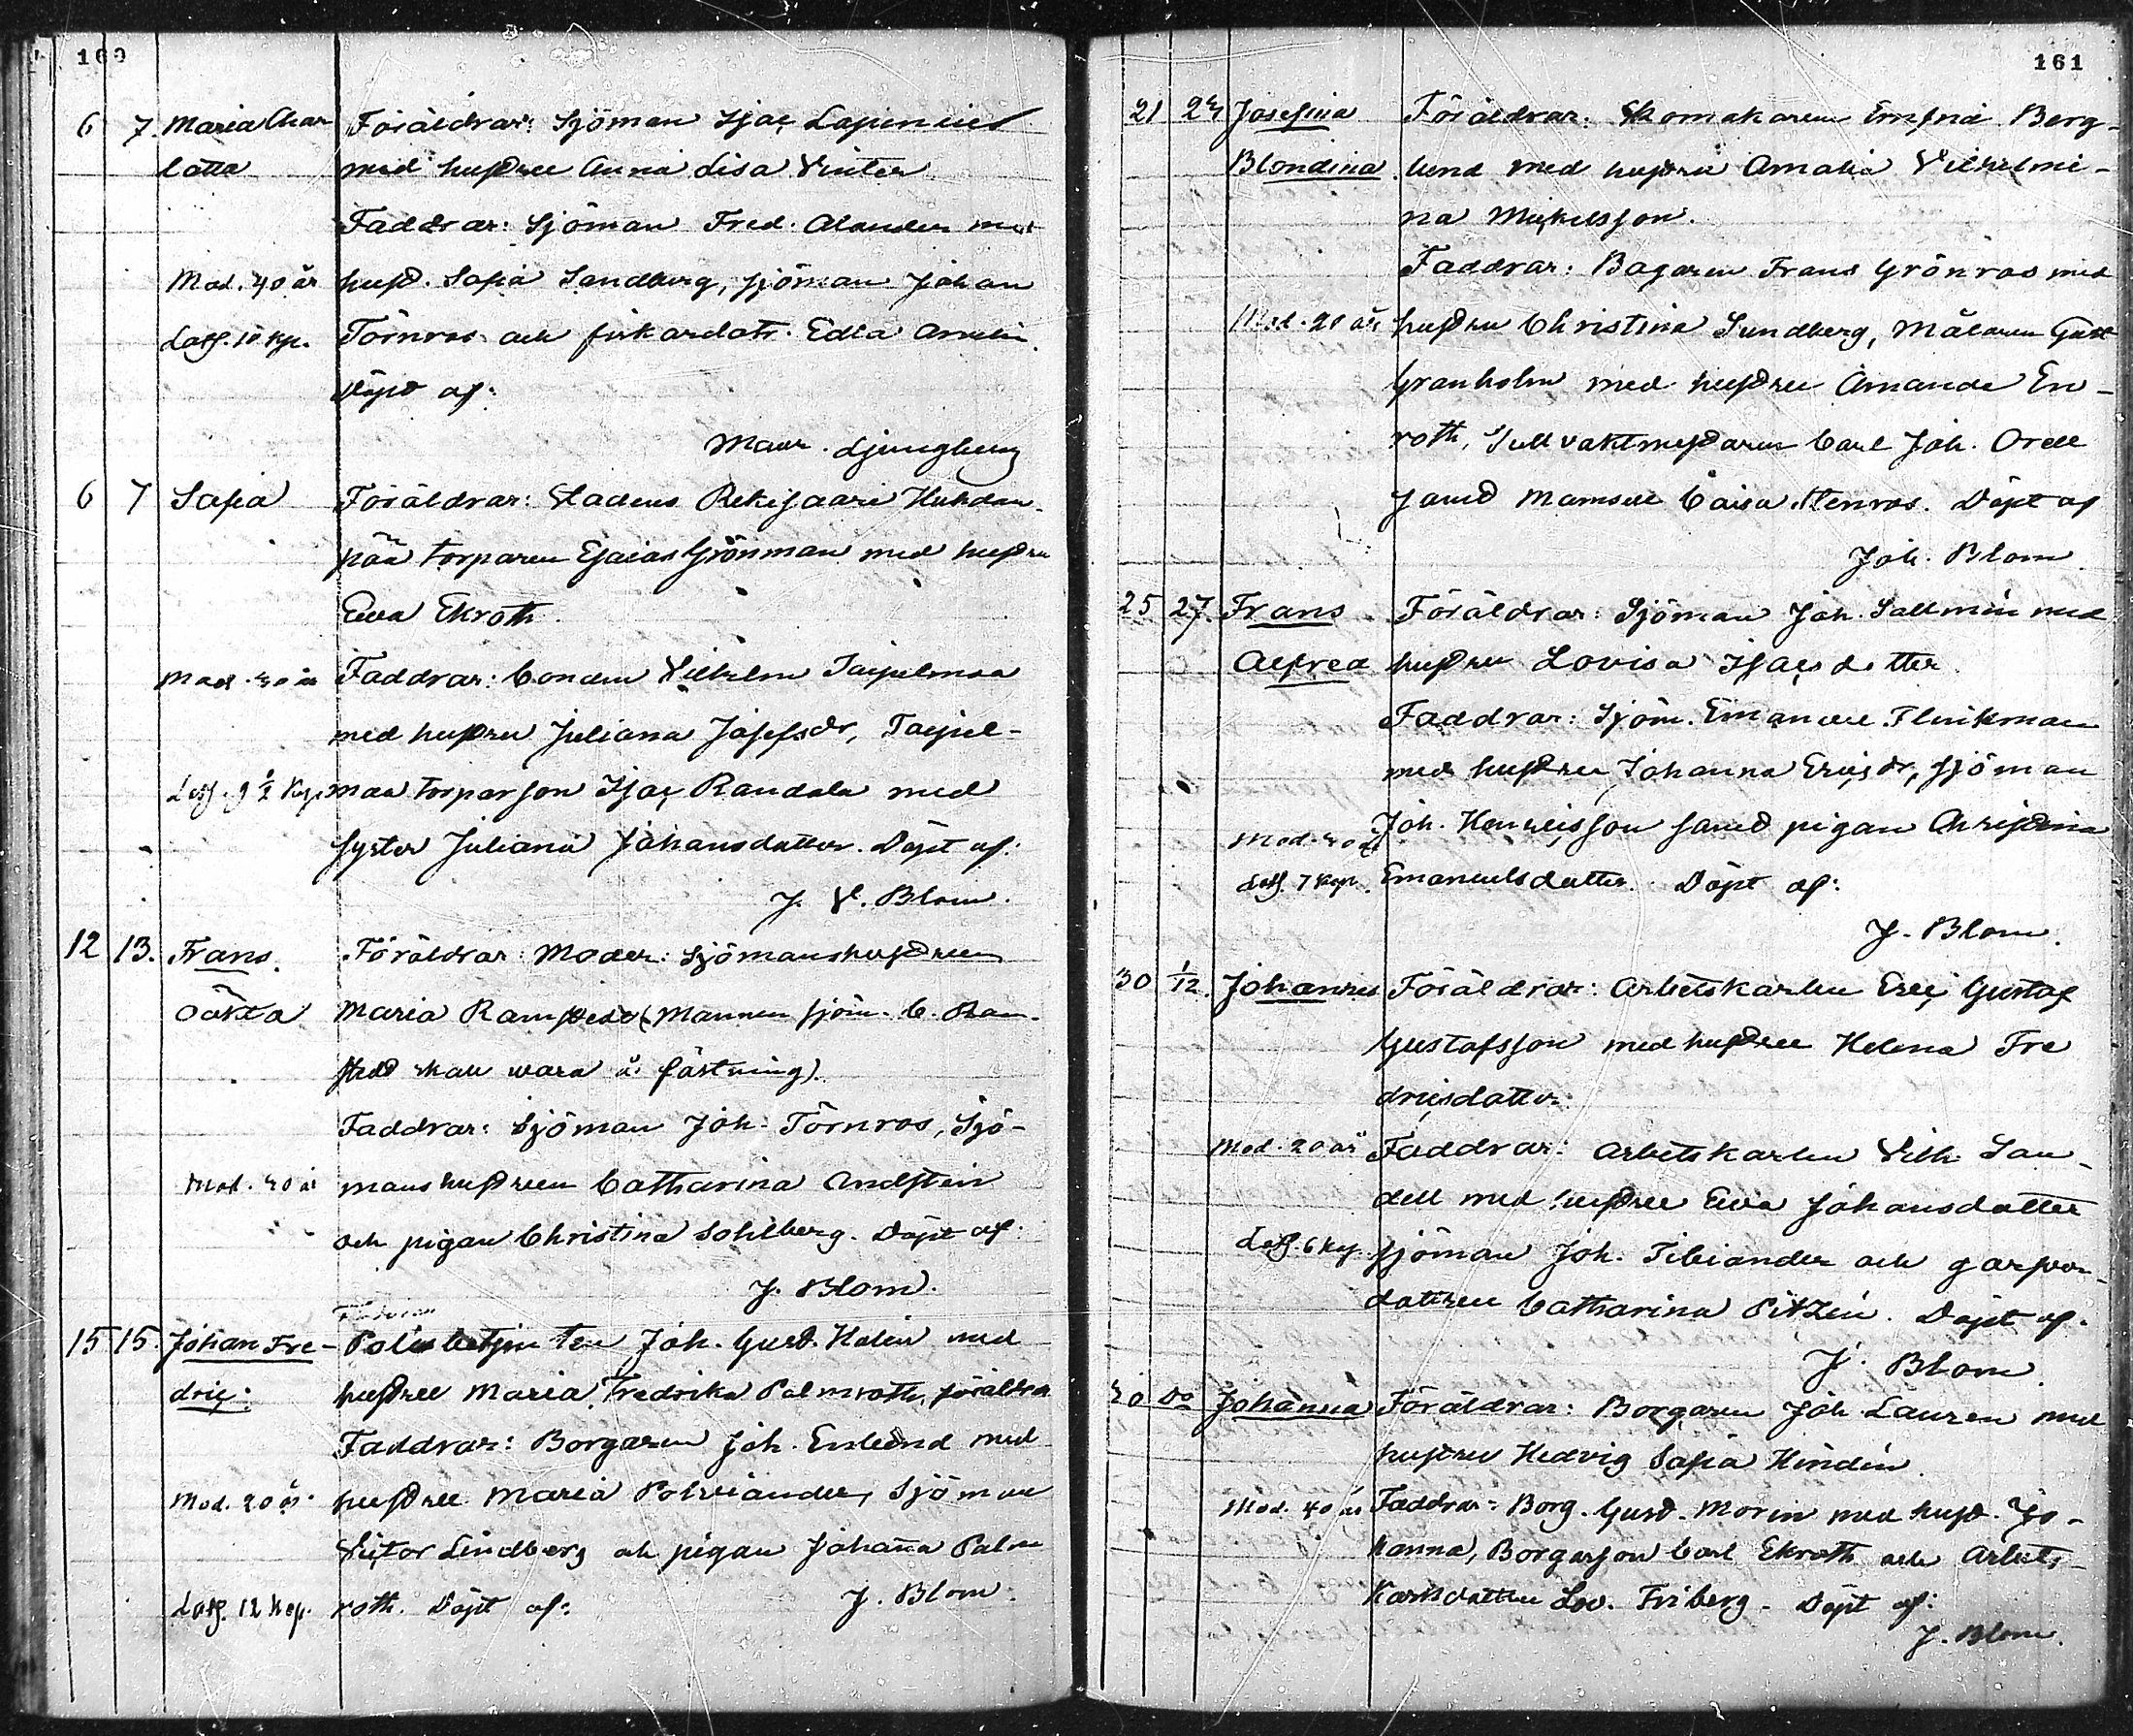 160
6 7. Maria Char Föräldrar: Sjöman Isac Lapinius
lotta med hustru Anna Lisa Vinter
Faddrar: Sjöman Fred. Alander med
Mod. 40 år hust. Sofia Sandberg, sjöman Johan
Lösg. 10 kop. Törnros och dotr. Edla
Döpt af:
Maur. Ljungberg
6 7 Sofia Föräldrar: Stadens Rekisaari Huhdan
pää torparen Esaias Grönman med hustru
Eva Ekroth
Mod. 30 år Faddrar: Bonden Vilhelm Taipelmaa
med hustru Juliana Josefsdr, Taipel-
Lösg. 9 ½ Kop. maa torparson Isac Randala med
syster Juliana Johansdotter. Döpt af:
J. V. Blom.
12 13. Frans. Föräldrar: Moder: Sjömanshustrun
oäkta Maria Ramstedt (Mannen sjöm. C. Ram-
stedt skall wara å fästning).
Faddrar: Sjöman Joh. Törnros, Sjö-
Mod. 30 år manshustrun Catharina Andstén
och pigan Christina Sohlberg. Döpt af:
J. Blom.
15 15. Johan Fre- Polisbetjenten Joh. Gust. Halin med
dric. hustru Maria Fredrika Palmroth, föräldrar
Faddrar: Borgaren Joh. Enlund med
Mod. 20 år hustru Maria Polviander, Sjöman
Victor Lindberg och pigan Johanna Palm
Lösg. 12 kop. roth. Döpt af: J. Blom.
161
21 24 Josefina Föräldrar: Skomakaren Berg-
Blondina. lund med hustru Amalia Vilhelmi-
na Mickelsson.
Faddrar: Bagaren Frans Grönros med
Mod. 20 år hustru Christina Sundberg, Målaren Gust
Granholm med hustru Amanda En-
roth, Tullvaktmästaren Carl Joh. Orell
samt Mamsell Caisa Stenros. Döpt af
Joh. Blom.
25 27. Frans Föräldrar: Sjöman Joh. Sallmén med
Alfred hustru Lovisa Isacsdotter.
Faddrar: Sjöm. Emanuel Flinkman
med hustru Johanna Ericsdr, sjöman
Mod. 30 år Joh. Henricsson samt pigan Christina
Lösg. 7 kop. Emanuelsdotter. Döpt af:
J. Blom.
30 1/12. Johannes Föräldrar: Arbetskarlen Eric Gustaf
Gustafsson med hustru Helena Fre
dricsdotter.
Mod. 20 år Faddrar: Arbetskarlen Vilh. San-
dell med hustru Eva Johansdotter
Lösg. 6 kop. sjöman Joh. Tibiander och garfvar-
dottren Catharina Pitzén. Döpt af.
J. Blom.
30 do Johanna Föräldrar: Borgaren Joh. Lauren med
hustru Hedvig Sofia Hindén.
Mod. 40 år Faddrar: Borg. Gust. Morin med hust. Jo-
hanna, Borgarson Carl Ekroth och Arbets-
karlsdottren Lov. Friberg. Döpt af:
J. Blom.